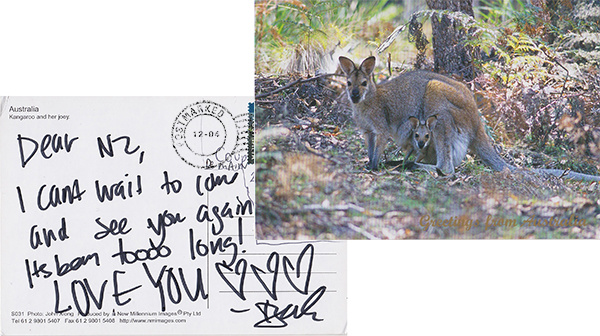 Australia
Kangaroo and her joey.
POSTMARKED
12-04
Dear NZ,
I cant wait to
and see you again
Its been toooo long!
LOVE YOU ♡♡♡
Greetings from Australia
S031 Photo: John Produced by New Millennium Images® Pty Ltd
Tel 61 2 9801 5407 Fax 61 2 9801 5408 http://www.nmimages.com